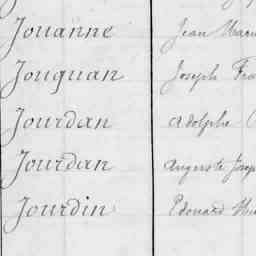 Jouanne Jean Marie
Jouquan Joseph Fra
Jourdan Adolphe
Jourdan Auguste Josep
Jourdin Edouard